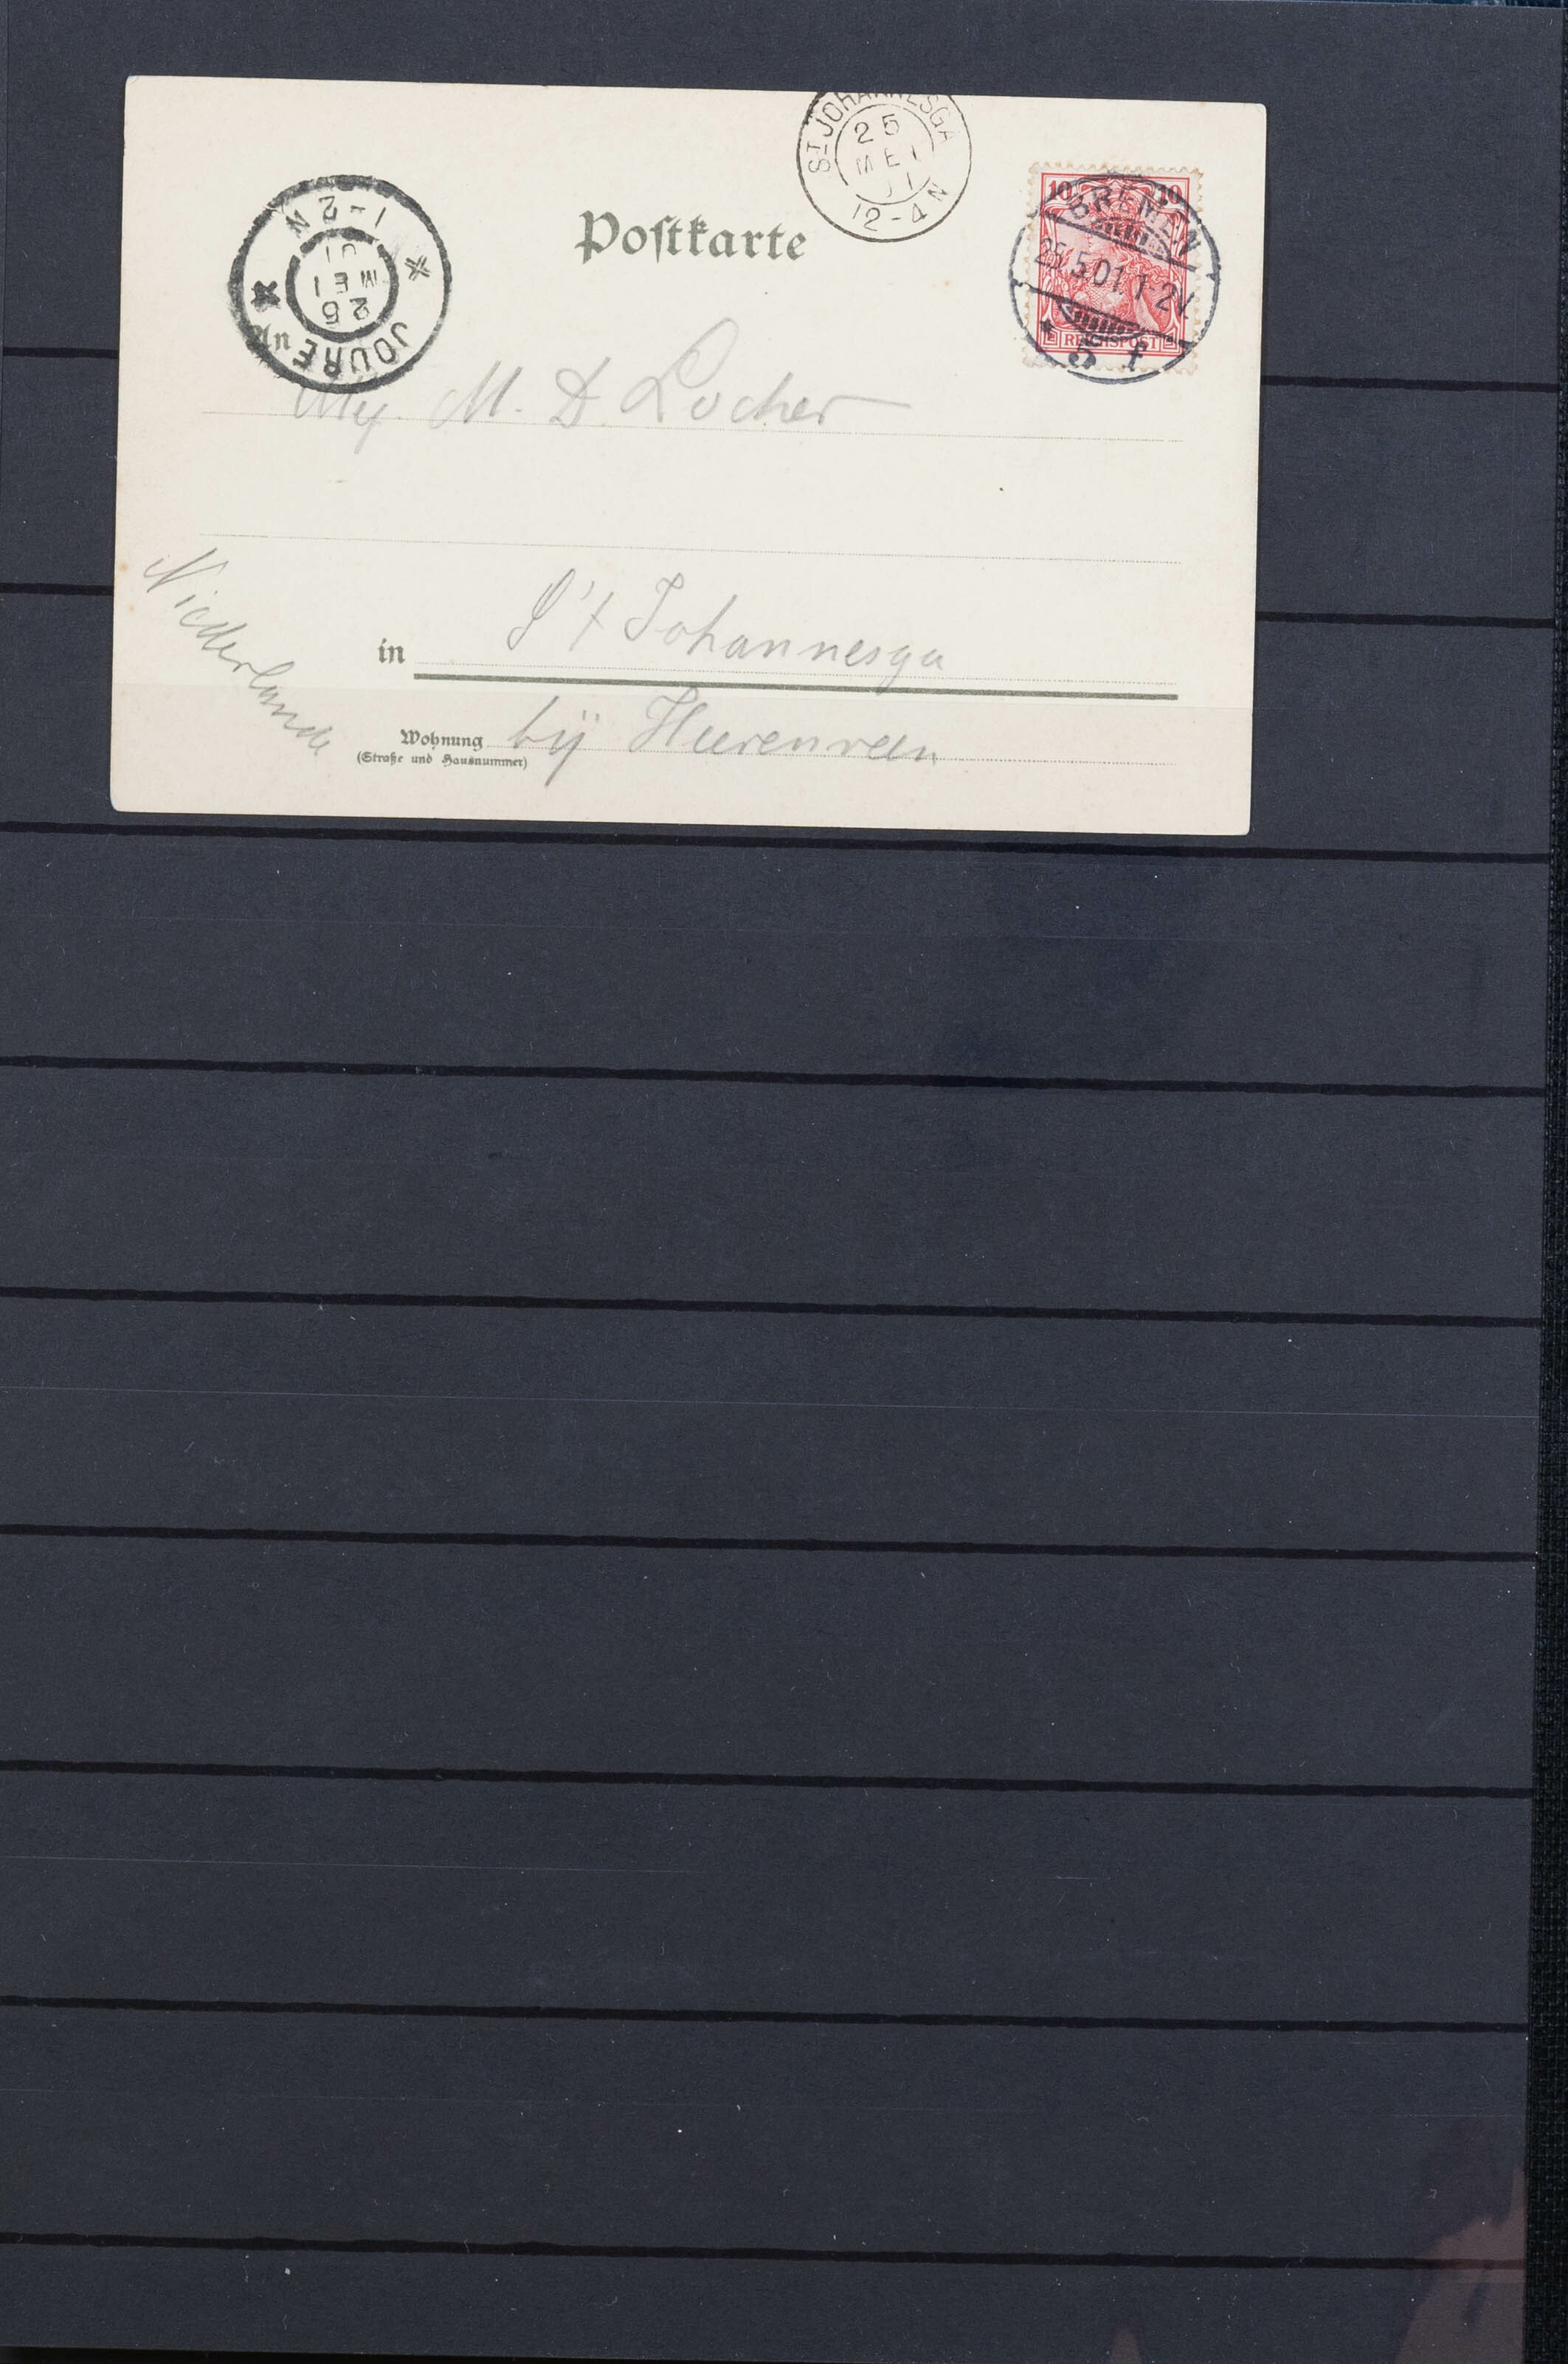 ST JOHANNESGA
25
MEI
01
12-4N
1-2N
01
MEI
25
JOURE
Postkarte
10 10
BREMEN
25.5.01. 1-2V.
REICHSPOST
* 5 f
An
M. D. Locher
in S't Johannesga
Wohnung bÿ Heerenveen
(Straße und Hausnummer)
Niederlande